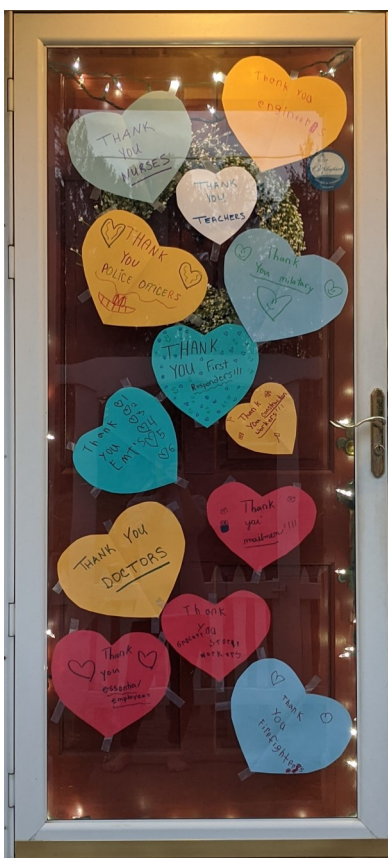 Thank you
engineers
THANK
YOU
NURSES
THANK
YOU
TEACHERS
THANK
YOU
POLICE OFFICERS
Thank
You military
THANK
YOU First
Responders!!!
Thank
you construction
workers!!!
Thank
you
EMT'S
Thank
you
mailmen!!!!
THANK YOU
DOCTORS
Thank
you
Thank
you
essential
employees
THANK
YOU
Firefighters